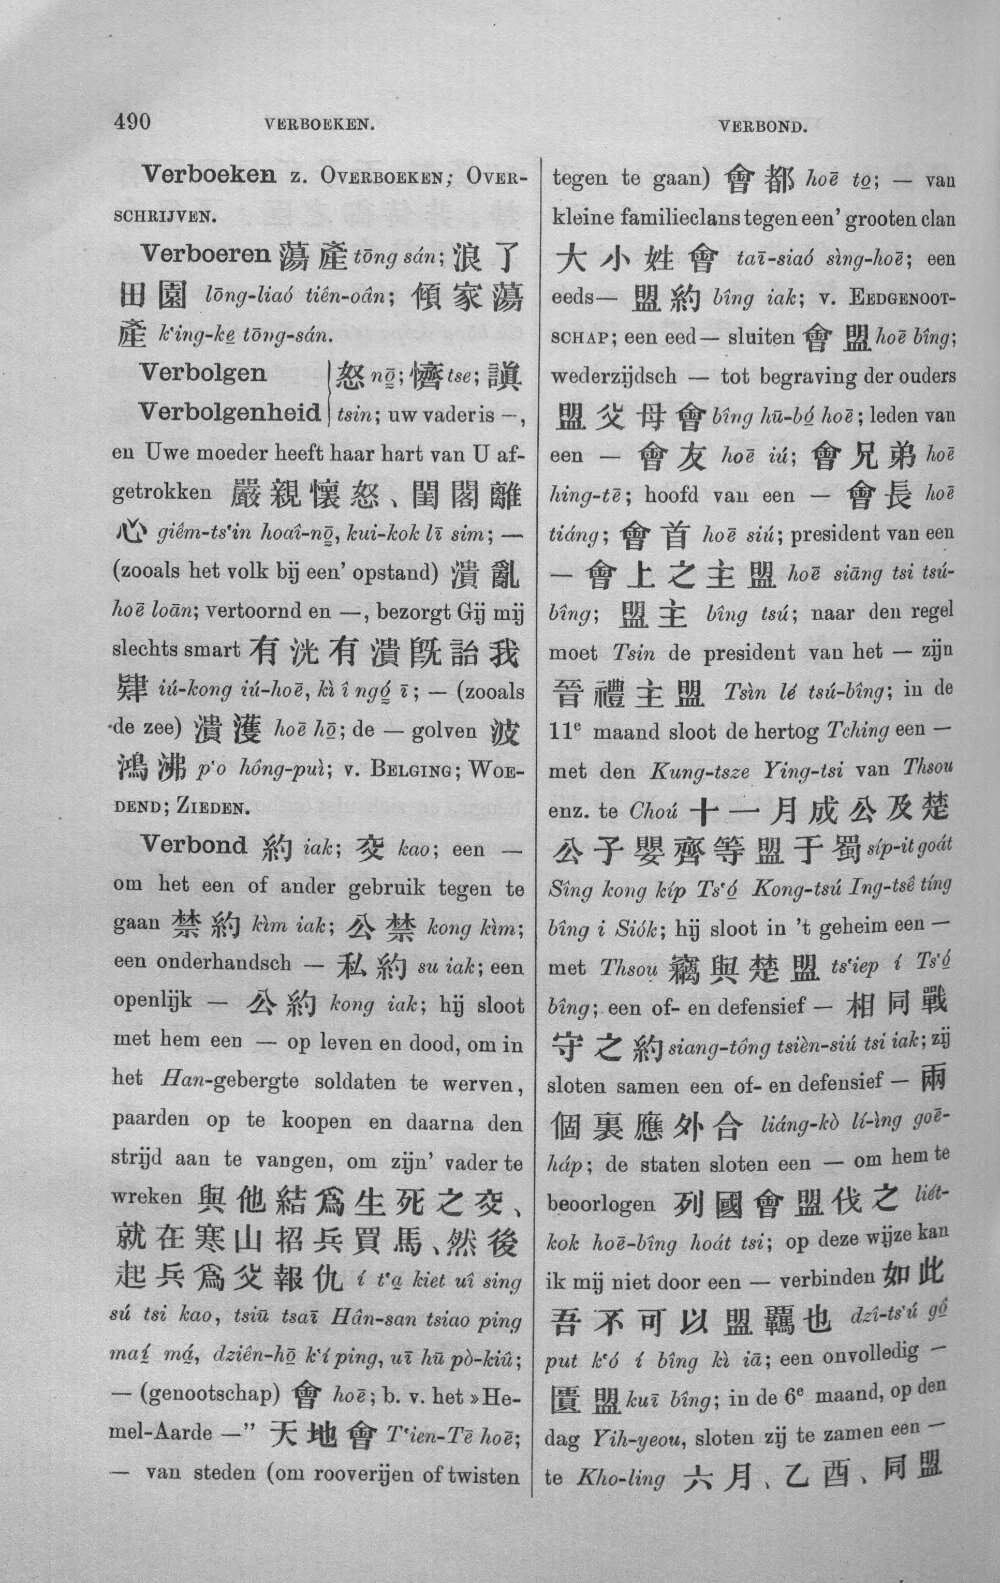 490
VERBOEKEN.
VERBOND.
Verboeken z. OVERBOEKEN; OVER-
SCHRIJVEN.
Verboeren 蕩產 tōng sán; 浪了
田園 lōng-liaó tiên-oân; 傾家蕩
產 k‘ing-ke̱ tōng-sán.
Verbolgen 怒 nō̤; 懠 tse; 謓
Verbolgenheid tsin; uw vader is —,
en Uwe moeder heeft haar hart van U af-
getrokken 嚴親懷怒、閨閣離
心 giêm-ts‘in hoaî-nō̤, kui-kok lī sim; —
(zooals het volk bij een’ opstand) 潰亂
hoē loān; vertoornd en —, bezorgt Gij mij
slechts smart 有洸有潰旣詒我
肄 iú-kong iú-hoē, kì î ngó̤ ī; — (zooals
de zee) 潰濩 hoē hō̤; de — golven 波
鴻沸 p‘o hông-puì; v. BELGING; WOE-
DEND; ZIEDEN.
Verbond 約 iak; 交 kao; een —
om het een of ander gebruik tegen te
gaan 禁約 kìm iak; 公禁 kong kìm;
een onderhandsch — 私約 su iak; een
openlijk — 公約 kong iak; hij sloot
met hem een — op leven en dood, om in
het Han-gebergte soldaten te werven,
paarden op te koopen en daarna den
strijd aan te vangen, om zijn’ vader te
wreken 與他結爲生死之交、
就在寒山招兵買馬、然後
起兵爲父報仇 í t‘a̱ kiet uî sing
sú tsi kao, tsiū tsaī Hân-san tsiao ping
maí̱ má̱, dziên-hō̤ k‘í ping, uī hū pò-kiû;
— (genootschap) 會 hoē; b. v. het »He-
mel-Aarde —” 天地會 T‘ien-Tē hoē;
— van steden (om rooverijen of twisten
tegen te gaan) 會都 hoē to̤; — van
kleine familieclans tegen een’ grooten clan
大小姓會 taī-siaó sìng-hoē; een
eeds— 盟約 bîng iak; v. EEDGENOOT-
SCHAP; een eed— sluiten 會盟 hoē bîng;
wederzijdsch — tot begraving der ouders
盟父母會 bîng hū-bó̤ hoē; leden van
een — 會友 hoē iú; 會兄弟 hoē
hing-tē; hoofd van een — 會長 hoē
tiáng; 會首 hoē siú; president van een
— 會上之主盟 hoē siāng tsi tsú-
bîng; 盟主 bîng tsú; naar den regel
moet Tsin de president van het — zijn
晉禮主盟 Tsìn lé tsú-bîng; in de
11e maand sloot de hertog Tching een —
met den Kung-tsze Ying-tsi van Thsou
enz. te Choú 十一月成公及楚
公子嬰齊等盟于蜀 síp-it goát
Sîng kong kíp Ts‘ó̤ Kong-tsú Ing-tsê tíng
bîng i Siók; hij sloot in ’t geheim een —
met Thsou 竊與楚盟 ts‘iep í Ts‘ó̤
bîng; een of- en defensief — 相同戰
守之約 siang-tông tsièn-siú tsi iak; zij
sloten samen een of- en defensief — 兩
個裏應外合 liáng-kò lí-ìng goē-
háp; de staten sloten een — om hem te
beoorlogen 列國會盟伐之 liét-
kok hoē-bîng hoát tsi; op deze wijze kan
ik mij niet door een — verbinden 如此
吾不可以盟羈也 dzî-ts‘ú gô̤
put k‘ó í bîng kì iā; een onvolledig —
匱盟 kuī bîng; in de 6e maand, op den
dag Yih-yeou, sloten zij te zamen een —
te Kho-ling 六月、乙酉、同盟